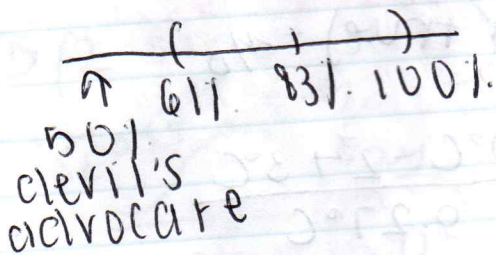 ( | )
↑ 61% 83% 100%
50%
devil's
advocate